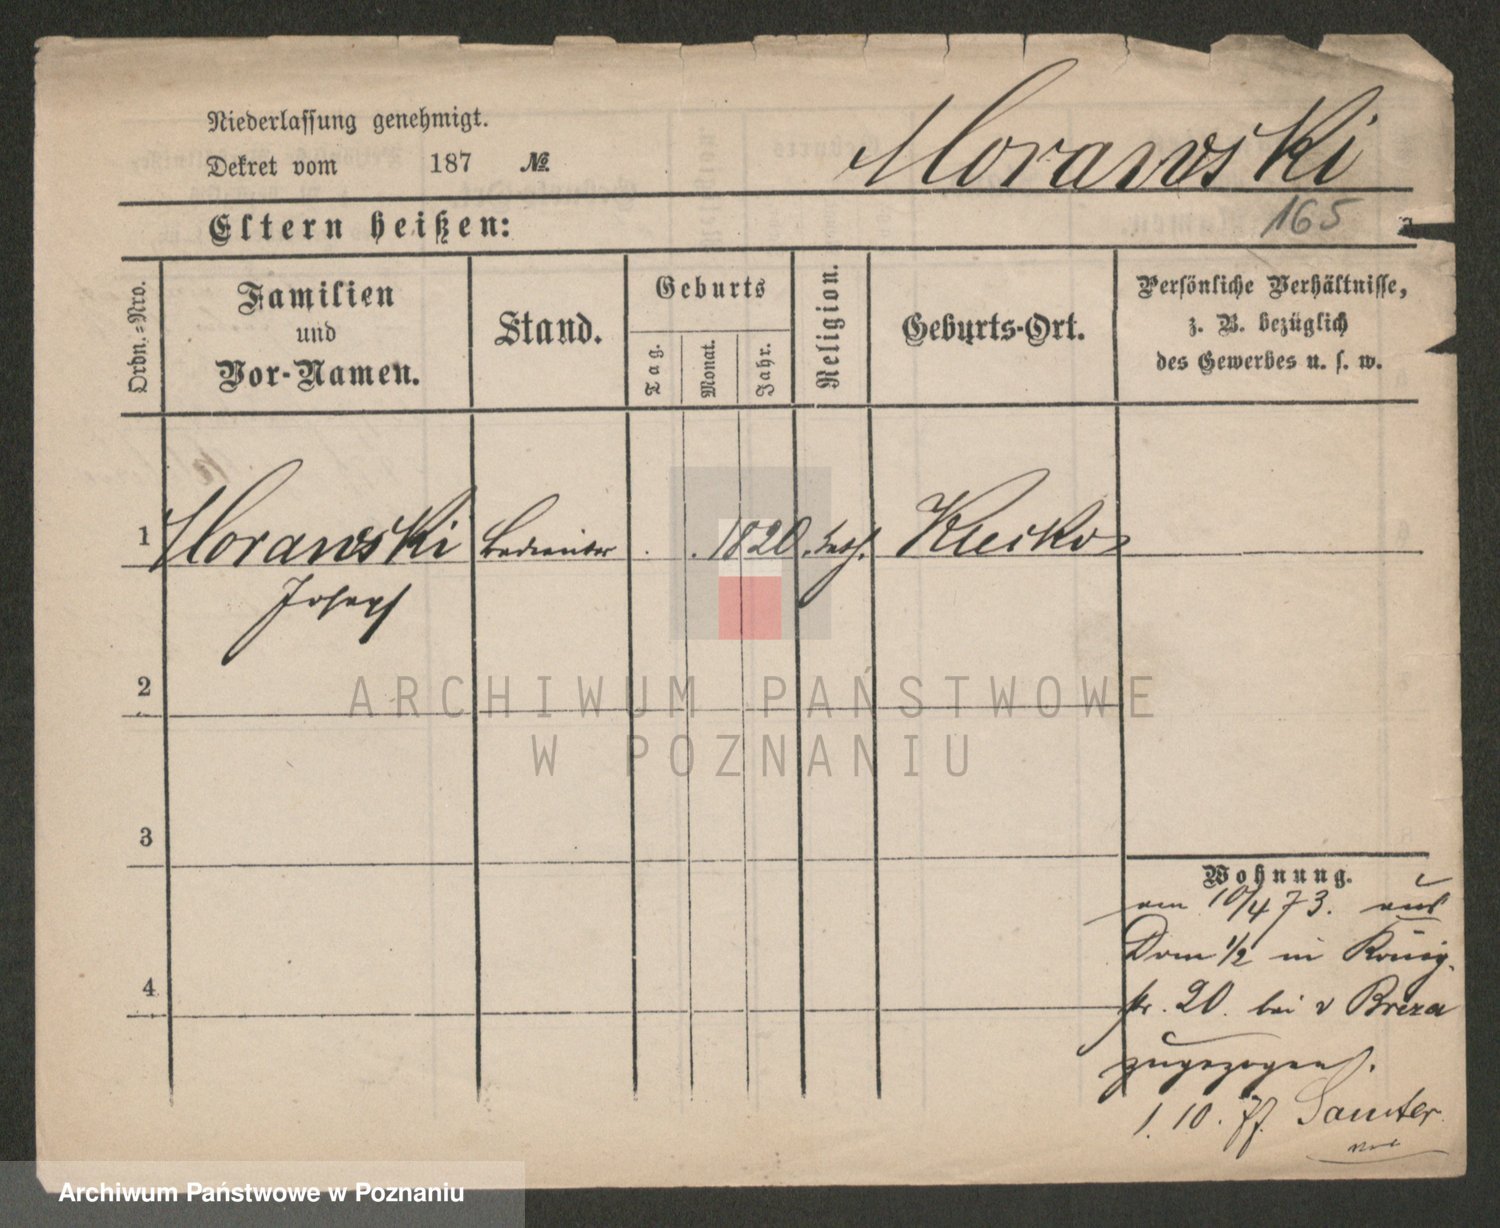 Niederlassung genehmigt.
Dekret vom 187 №
Morawski
165
Eltern heißen:
Ordn.-Nro.
Familien
und
Vor-Namen.
Stand.
Geburts
Tag.
Monat.
Jahr.
Religion.
Geburts-Ort.
Persönliche Verhältnisse,
z. B. bezüglich
des Gewerbes u. s. w.
1 Morawski Bedienter 1820. kath.
Joseph
2
ARCHIWUM PAŃSTWOWE
W POZNANIU
3
Wohnung.
am 10/4 73. aus
Dom 1/2 in König-
str. 20. bei v Breza
zugezogen.
4
1. 10. 77. Samter
Archiwum Państwowe w Poznaniu